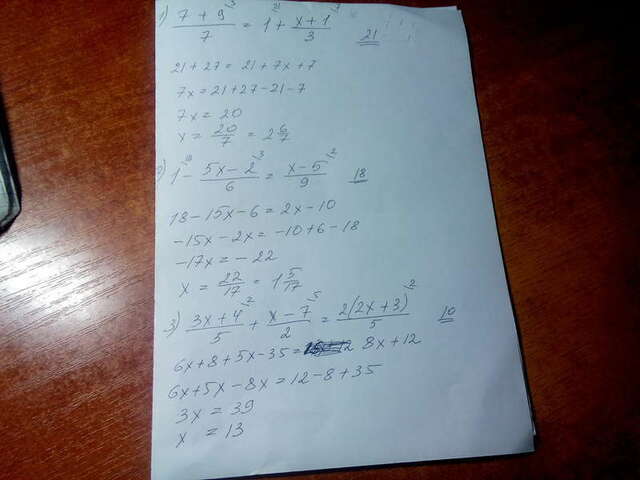 1) (7 + 9)/7 ^3 = 1 ^21 + (x + 1)/3 ^7   21
21 + 27 = 21 + 7x + 7
7x = 21 + 27 - 21 - 7
7x = 20
x = 20/7 = 2 6/7
2) 1 ^18 - (5x - 2)/6 ^3 = (x - 5)/9 ^2   18
18 - 15x - 6 = 2x - 10
-15x - 2x = -10 + 6 - 18
-17x = - 22
x = 22/17 = 1 5/17
3) (3x + 4)/5 ^2 + (x - 7)/2 ^5 = 2(2x + 3)/5 ^2   10
6x + 8 + 5x - 35 = 8x + 12
6x + 5x - 8x = 12 - 8 + 35
3x = 39
x = 13